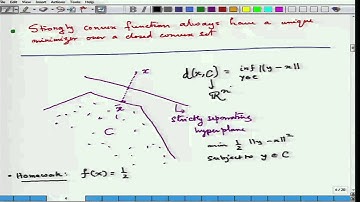 • Strongly convex function always have a unique
minimizer over a closed convex set
x
d(x,C) = inf ||y-x||
y∈C
ℝⁿ
x̄
C
strictly separating
hyperplane
min ½ ||y-x||²
subject to y ∈ C
• Homework: f(x) = ½